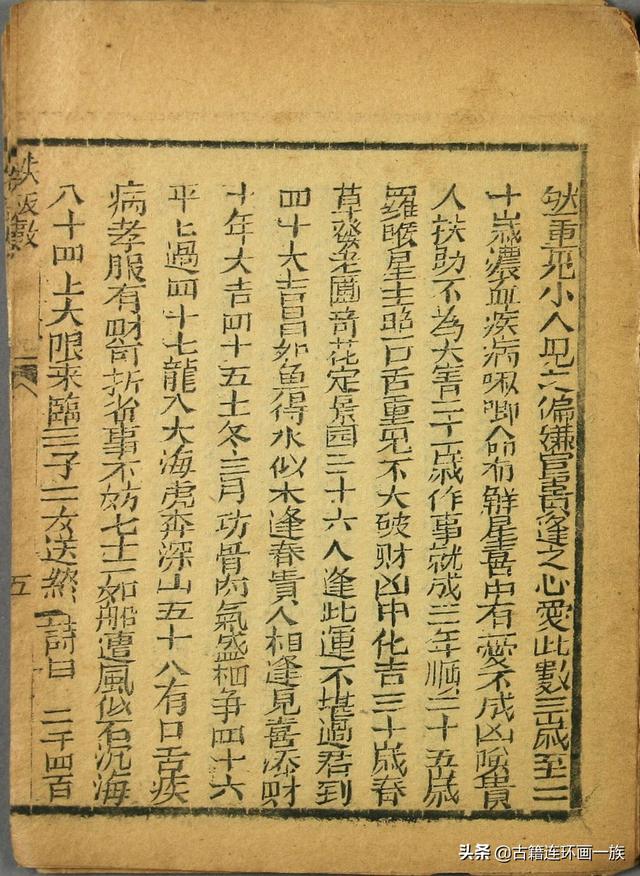 然重児小人見之偏嫌官貴逢之心愛此數三歲至二
十歲濃血疾病啾唧命有觧星喜中有憂不成凶險貴
人扶助不為大害二十一歲作事就成三年順三十五歲
羅睺星主照口舌重見不大破财凶中化吉三十歲春
草發老圃竒花定景园三十六人逢此運不堪過君到
四十大吉昌如魚得水似木逢春貴人相逢見喜添财
十年大吉四十五十冬三月功骨肉氣盛相争四十六
平上過四十七龍入大海虎奔深山五十八有口舌疾
病孝服有财可折省事不妨七十一如船遭風似石沉海
八十四上大限来臨三子二女送終 詩曰 二千四百
鉄板數
五
头条 @古籍连环画一族